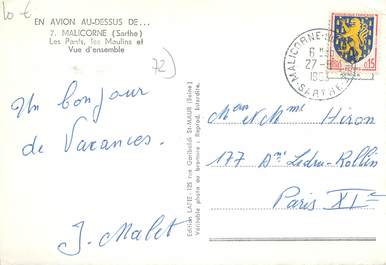 10 €
EN AVION AU-DESSUS DE...
7. MALICORNE (Sarthe)
Les Ponts, les Moulins et
Vue d'ensemble
72)
Un bonjour
de Vacances.
J. Malet
Edition LAPIE - 125 rue Garibaldi St-MAUR (Seine)
Véritable photo au bromure : Reprod. interdite.
MALICORNE
SARTHE
27-
0,15
Mr et Mme Hiron
177 Av. Ledru-Rollin
Paris XIe